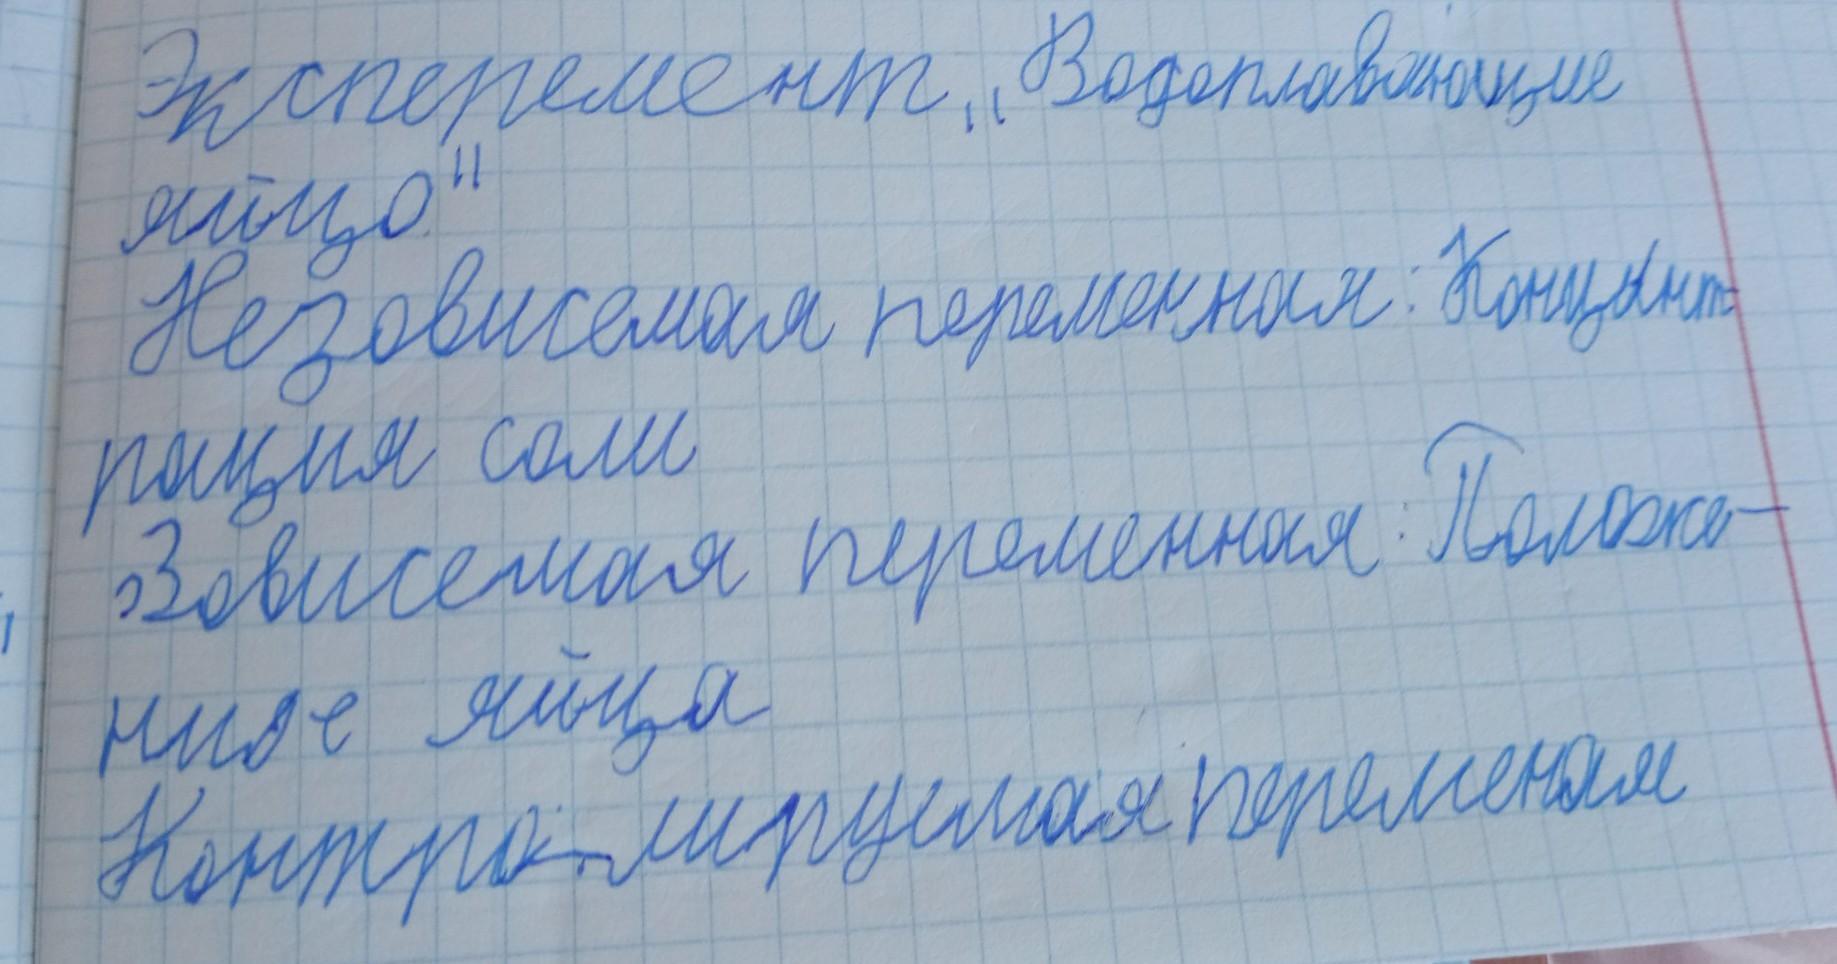 Эксперемент „Водоплавающие
яйцо"
Незовисемая переменная: Концент
рация соли
Зовисемая переменная: Положе-
ниое яйца
Контролируемая переменая